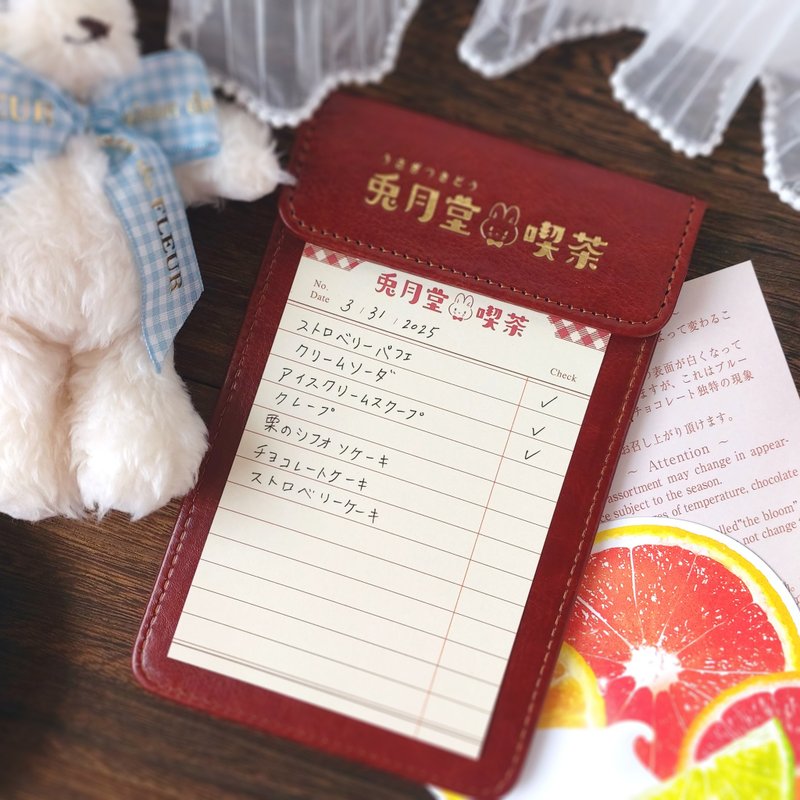 EUR
FLEUR
うさぎつきどう
兎月堂 喫茶
兎月堂 喫茶
No.
Date 3 / 31 / 2025
Check
ストロベリーパフェ ✓
クリームソーダ ✓
アイスクリームスクープ ✓
クレープ
栗のシフォンケーキ
チョコレートケーキ
ストロベリーケーキ
よって変わるこ
表面が白くなって
ますが、これはブルー
チョコレート独特の現象
お召し上がり頂けます。
~ Attention ~
assortment may change in appear-
subject to the season.
of temperature, chocolate
"the bloom"
not change